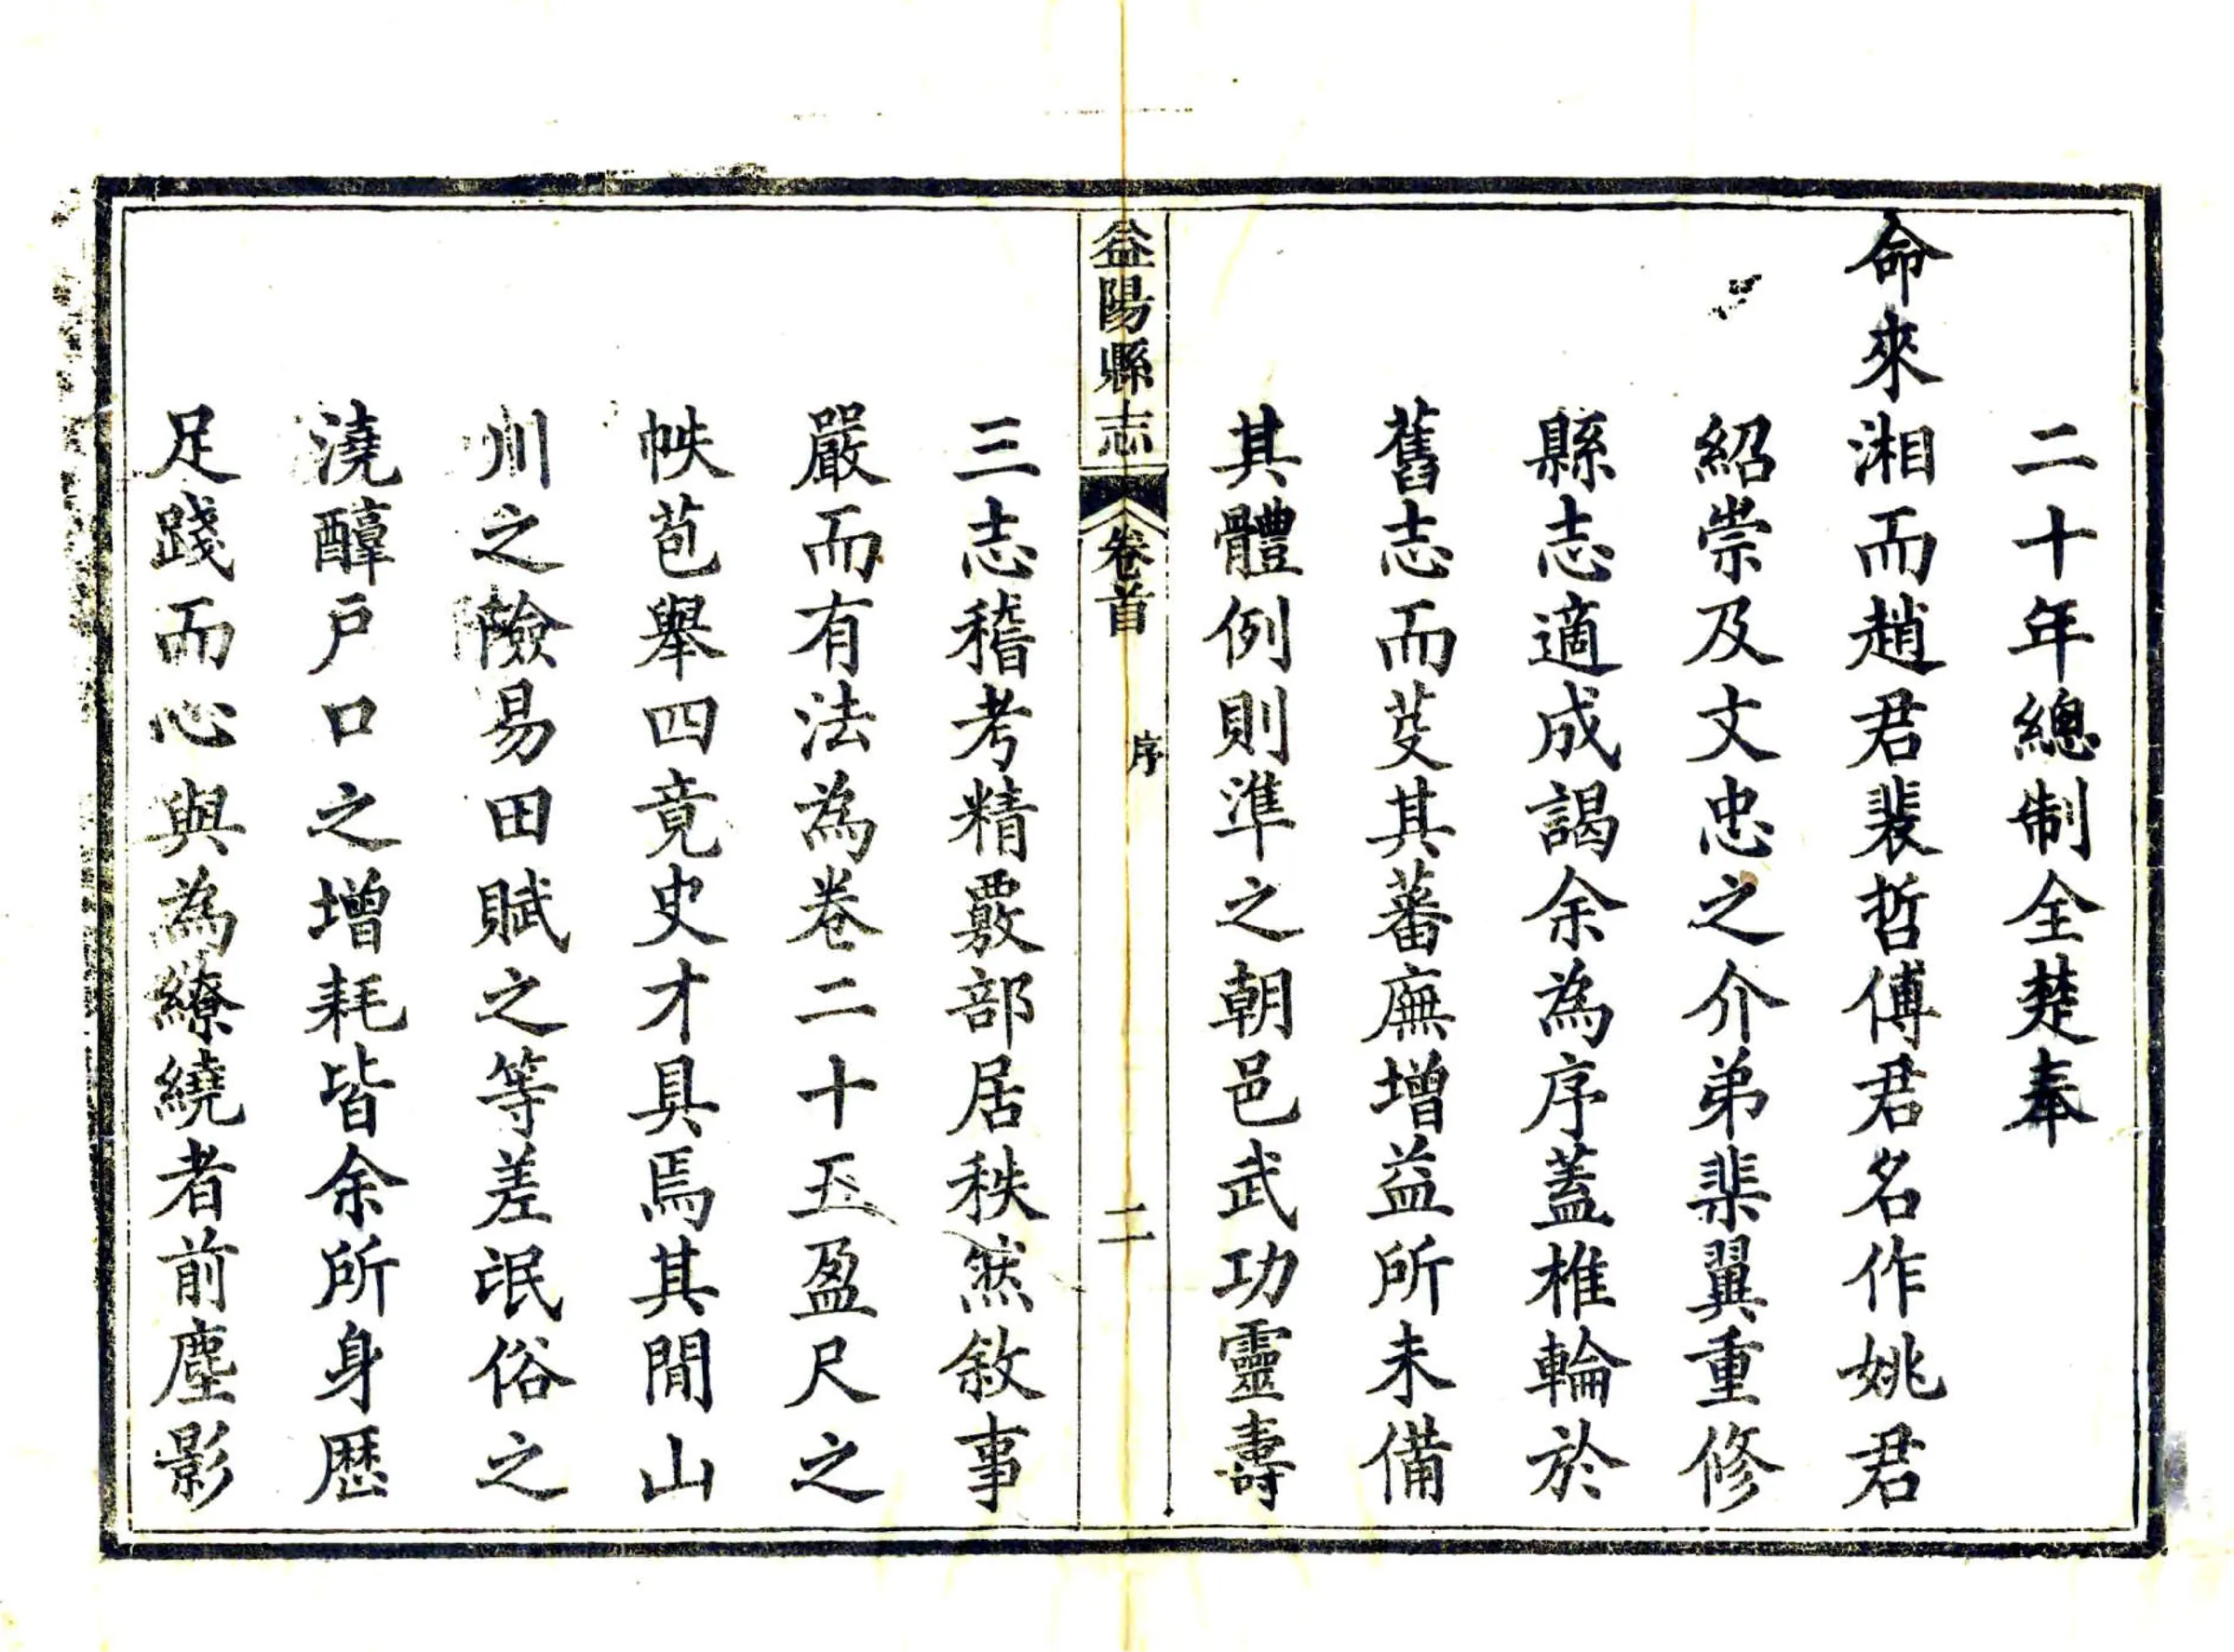 二十年總制全楚奉
命來湘而趙君裴哲傅君名作姚君
紹崇及文忠之介弟棐翼重修
縣志適成謁余為序蓋椎輪於
舊志而芟其蕃廡增益所未備
其體例則準之朝邑武功靈壽
益陽縣志
卷首
序
二
三志稽考精覈部居秩然敘事
嚴而有法為卷二十五盈尺之
帙苞舉四竟史才具焉其閒山
川之險易田賦之等差氓俗之
澆醇戶口之增耗皆余所身歷
足踐而心與為繚繞者前塵影